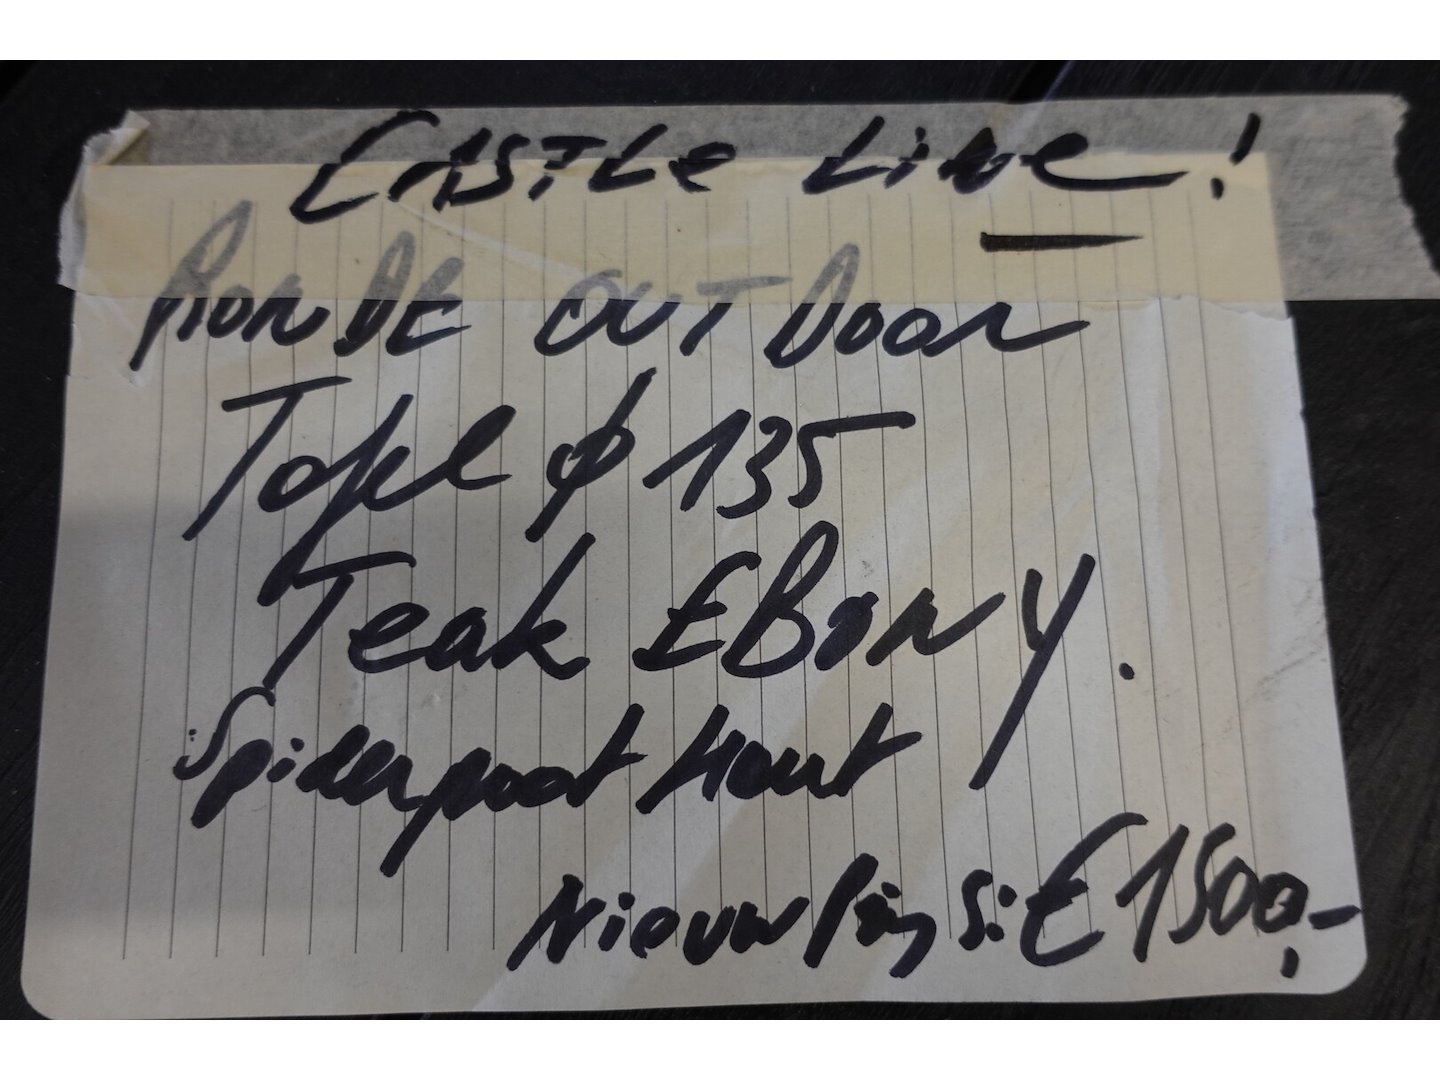 CASTLE Line!
RONDE OUTDOOR
Tafel ø 135
Teak EBONY.
Spiderpoot Hout
Nieuwprijs: € 1500,-